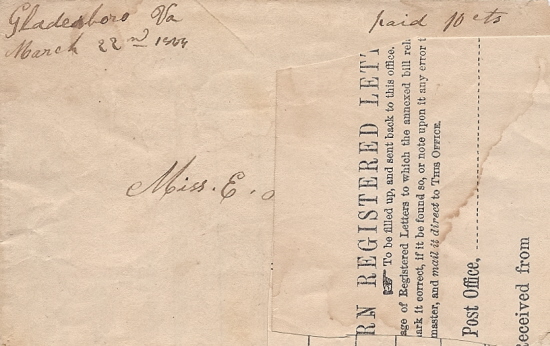 Gladesboro Va
March 22nd
paid 10 cts
Miss. E.
RN REGISTERED LET
☞ To be filled up, and sent back to this office.
age of Registered Letters to which the annexed bill rel
ark it correct, if it be found so, or note upon it any error i
master, and mail it direct to THIS OFFICE.
Post Office,
eceived from